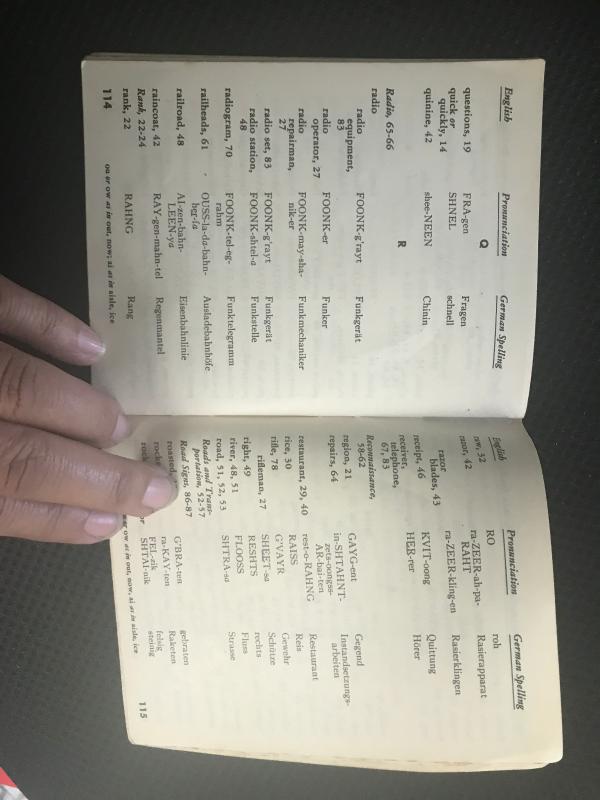 English Pronunciation German Spelling
Q
questions, 19 FRA-gen Fragen
quick or
quickly, 14 SHNEL schnell
quinine, 42 shee-NEEN Chinin
R
Radio, 65-66
radio
radio
equipment,
83 FOONK-g'rayt Funkgerät
radio
operator, 27 FOONK-er Funker
radio
repairman,
27 FOONK-may-sha-
nik-er Funkmechaniker
radio set, 83 FOONK-g'rayt Funkgerät
radio station,
48 FOONK-shtel-a Funkstelle
radiogram, 70 FOONK-tel-eg-
rahm Funktelegramm
railheads, 61 OUSS-la-da-bahn-
her-fa Ausladebahnhöfe
railroad, 48 AI-zen-bahn-
LEEN-ya Eisenbahnlinie
raincoat, 42 RAY-gen-mahn-tel Regenmantel
Rank, 22-24
rank, 22 RAHNG Rang
114 oo or ow as in out, now; ai as in aisle, ice
English Pronunciation German Spelling
raw, 32 RO roh
razor, 42 ra-ZEER-ah-pa-
RAHT Rasierapparat
razor
blades, 43 ra-ZEER-kling-en Rasierklingen
receipt, 46 KVIT-oong Quittung
receiver,
telephone,
67, 83 HER-rer Hörer
Reconnaissance,
58-62
region, 21 GAYG-ent Gegend
repairs, 64 in-SHTAHNT-
zets-oongss-
AR-bai-ten Instandsetzungs-
arbeiten
restaurant, 29, 40 rest-o-RAHNG Restaurant
rice, 30 RAISS Reis
rifle, 78 G'VAYR Gewehr
rifleman, 27 SHEET-sa Schütze
right, 49 RESHTS rechts
river, 48, 51 FLOOSS Fluss
road, 51, 52, 53 SHTRA-sa Strasse
Roads and Trans-
portation, 52-57
Road Signs, 86-87
roasted, G'BRA-ten gebraten
ra-KAY-ten Raketen
FEL-zik felsig
or SHTAI-nik steinig
ow as in out, now, ai as in aisle, ice
115